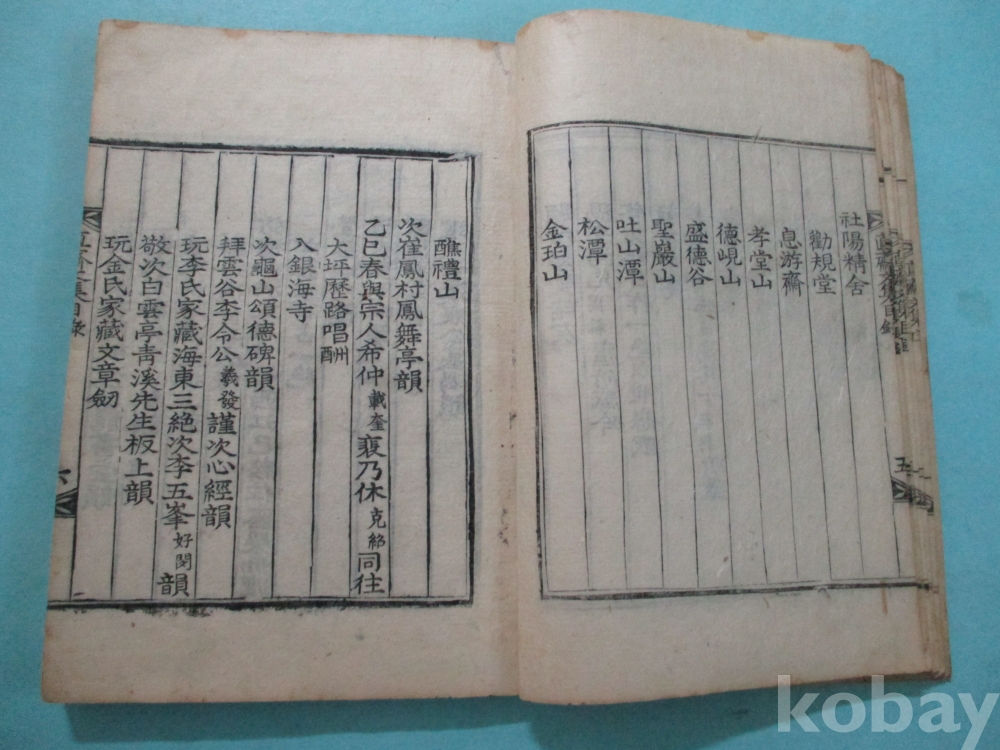 社陽精舍
勸規堂
息游齋
孝堂山
德峴山
盛德谷
聖巖山
吐山潭
松潭
金珀山
五
醮禮山
次崔鳳村鳳舞亭韻
乙巳春與宗人希仲載奎裵乃休克紹同往
大坪歷路唱酬
入銀海寺
次龜山頌德碑韻
拜雲谷李令公羲發謹次心經韻
玩李氏家藏海東三絶次李五峯好閔韻
敬次白雲亭靑溪先生板上韻
玩金氏家藏文章劒
目錄
六
kobay